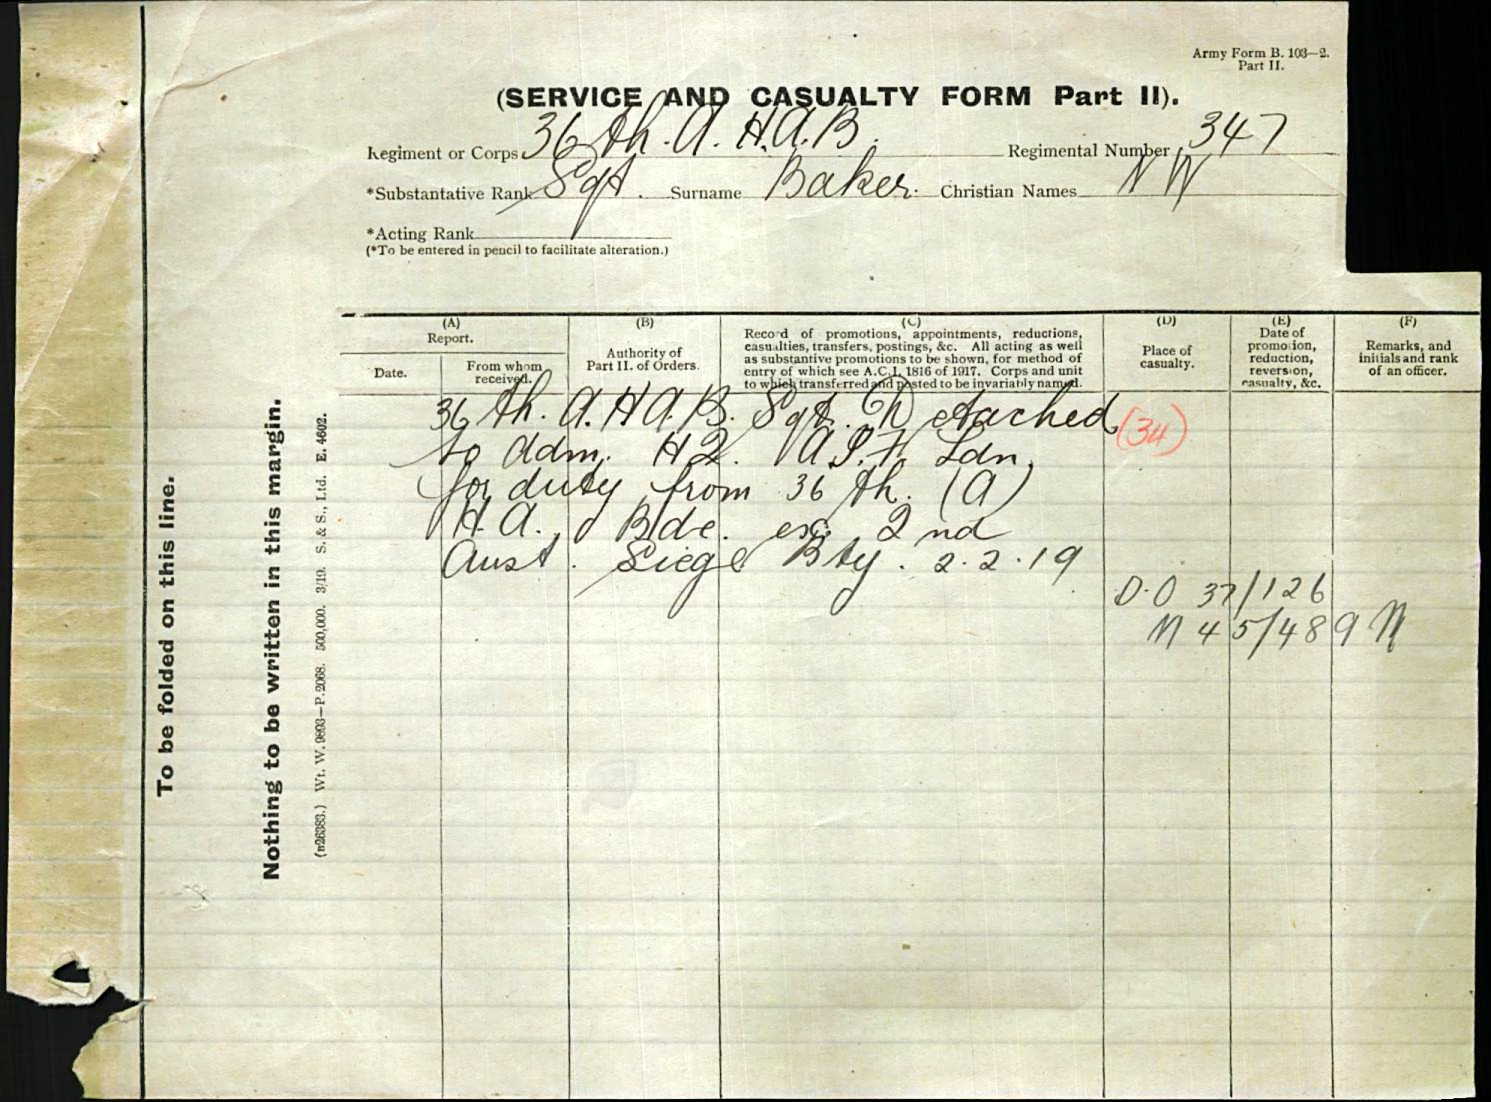 Army Form B. 103—2.
Part II.
(SERVICE AND CASUALTY FORM Part II).
Regiment or Corps 36th. A. H.A.B. Regimental Number 347
*Substantative Rank Sgt. Surname Baker. Christian Names N W
*Acting Rank
(*To be entered in pencil to facilitate alteration.)
(A)
Report.
Date.
From whom
received.
(B)
Authority of
Part II. of Orders.
(C)
Record of promotions, appointments, reductions,
casualties, transfers, postings, &c. All acting as well
as substantive promotions to be shown, for method of
entry of which see A.C.I. 1816 of 1917. Corps and unit
to which transferred and posted to be invariably named.
(D)
Place of
casualty.
(E)
Date of
promotion,
reduction,
reversion,
casualty, &c.
(F)
Remarks, and
initials and rank
of an officer.
36th. A. H A. B. Sgt. Detached (34)
to Adm. HQ. A.I.F Ldn,
for duty from 36 th. (A)
H. A. Bde. 2nd
Aust. Siege Bty. 2.2.19
D.O 37/126
N 45/489
To be folded on this line.
Nothing to be written in this margin.
(B26383.) Wt. W. 9893—P. 2068. 500,000. 3/19. S. & S., Ltd. E. 4602.